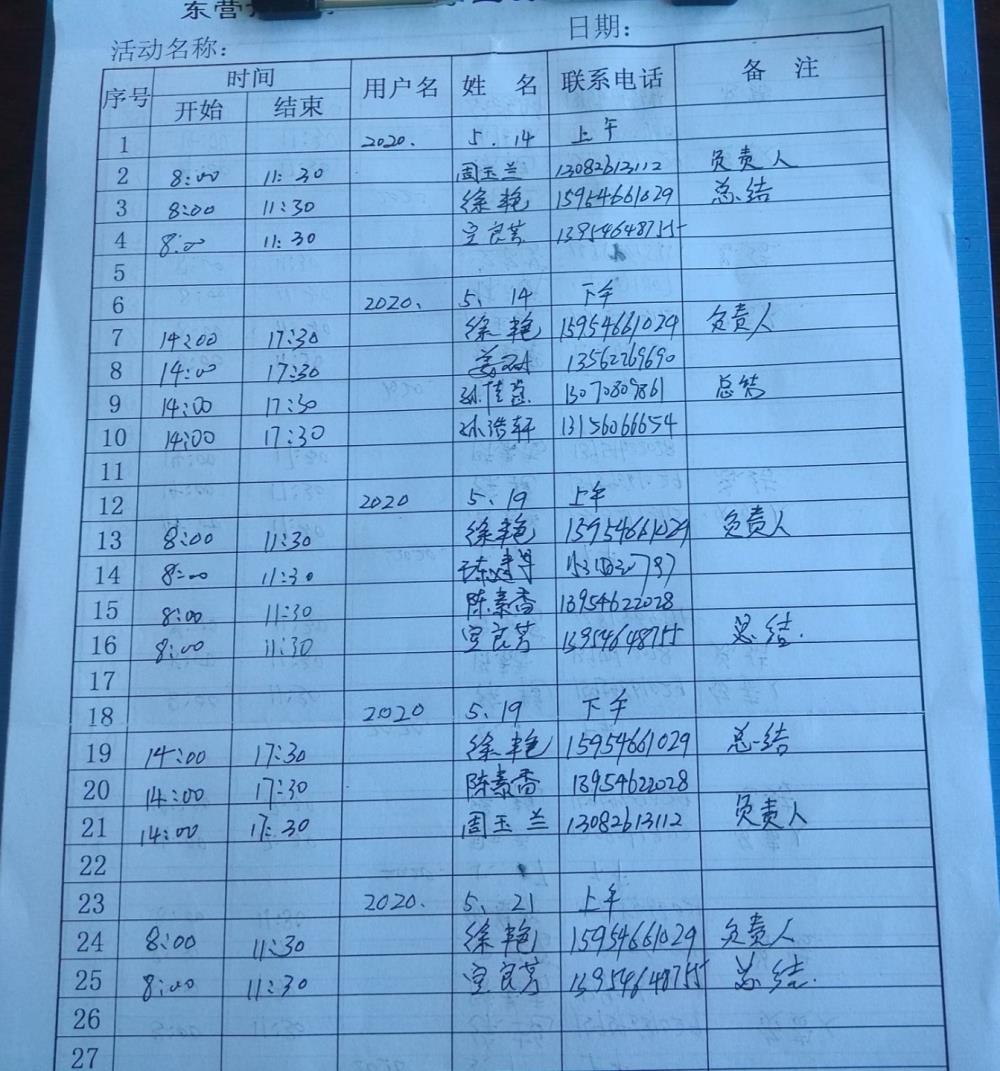 东营
活动名称： 日期：
序号 时间 用户名 姓 名 联系电话 备 注
开始 结束
1 2020. 5. 14 上午
2 8:00 11:30 周玉兰 13082613112 负责人
3 8:00 11:30 徐艳 15954661029 总结
4 8:00 11:30 宣良芳 13954648755
5
6 2020. 5. 14 下午
7 14:00 17:30 徐艳 15954661029 负责人
8 14:00 17:30 13562269690
9 14:00 17:30 13070809861 总结
10 14:00 17:30 孙浩轩 13156066654
11
12 2020 5. 19 上午
13 8:00 11:30 徐艳 15954661029 负责人
14 8:00 11:30
15 8:00 11:30 陈素香 13954622028
16 8:00 11:30 宣良芳 13954648755 总结.
17
18 2020 5. 19 下午
19 14:00 17:30 徐艳 15954661029 总结
20 14:00 17:30 陈素香 13954622028
21 14:00 17:30 周玉兰 13082613112 负责人
22
23 2020. 5. 21 上午
24 8:00 11:30 徐艳 15954661029 负责人
25 8:00 11:30 宣良芳 13954648755 总结.
26
27